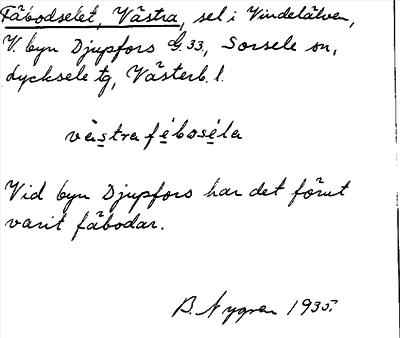 Fäbodselet, Västra, sel i Vindelälven,
V. byn Djupfors G.33, Sorsele sn,
Lycksele tg, Västerb. l.
västra fèbosèla
Vid byn Djupfors har det förut
varit fäbodar.
B. Nygren 1935.